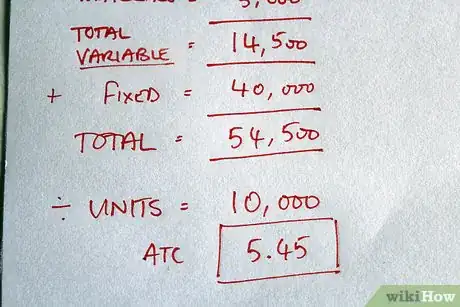 5,000
TOTAL
VARIABLE = 14,500
+ FIXED = 40,000
TOTAL = 54,500
÷ UNITS = 10,000
ATC 5.45
wikiHow